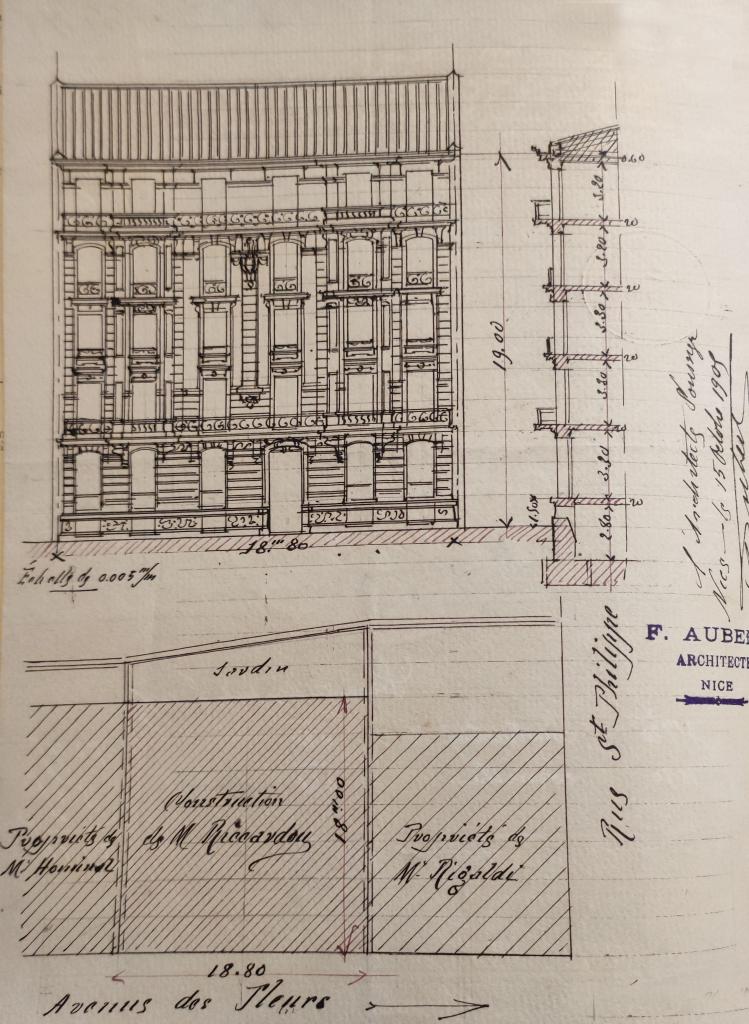 0.60
3.20
20
3.20
20
3.20
20
3.20
20
3.20
20
2.60
1.50
19.00
18.m 80
Échelle de 0.005 m/m
L'Architecte
Nice le 15 Octobre 1905
F. AUBE
ARCHITECTE
NICE
Jardin
Rue St Philippe
Construction
de M Riccardou
18.m 00
Propriété de
Mr
Propriété de
Mr Rigaldi
18.80
Avenue des Fleurs